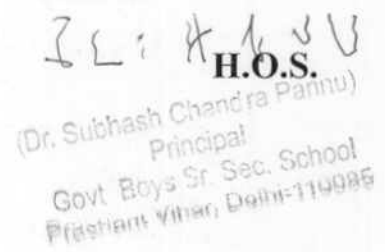 H.O.S.
(Dr. Subhash Chandra Pannu)
Principal
Govt Boys Sr. Sec. School
Prashant Vihar, Delhi-110085